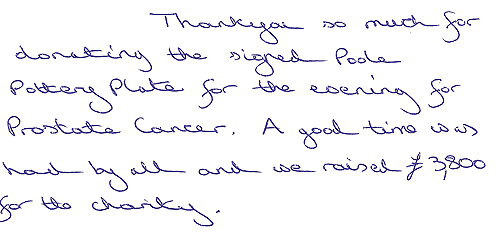 Thankyou so much for
donating the signed Poole
Pottery Plate for the evening for
Prostate Cancer. A good time was
had by all and we raised £3,800
for the charity.